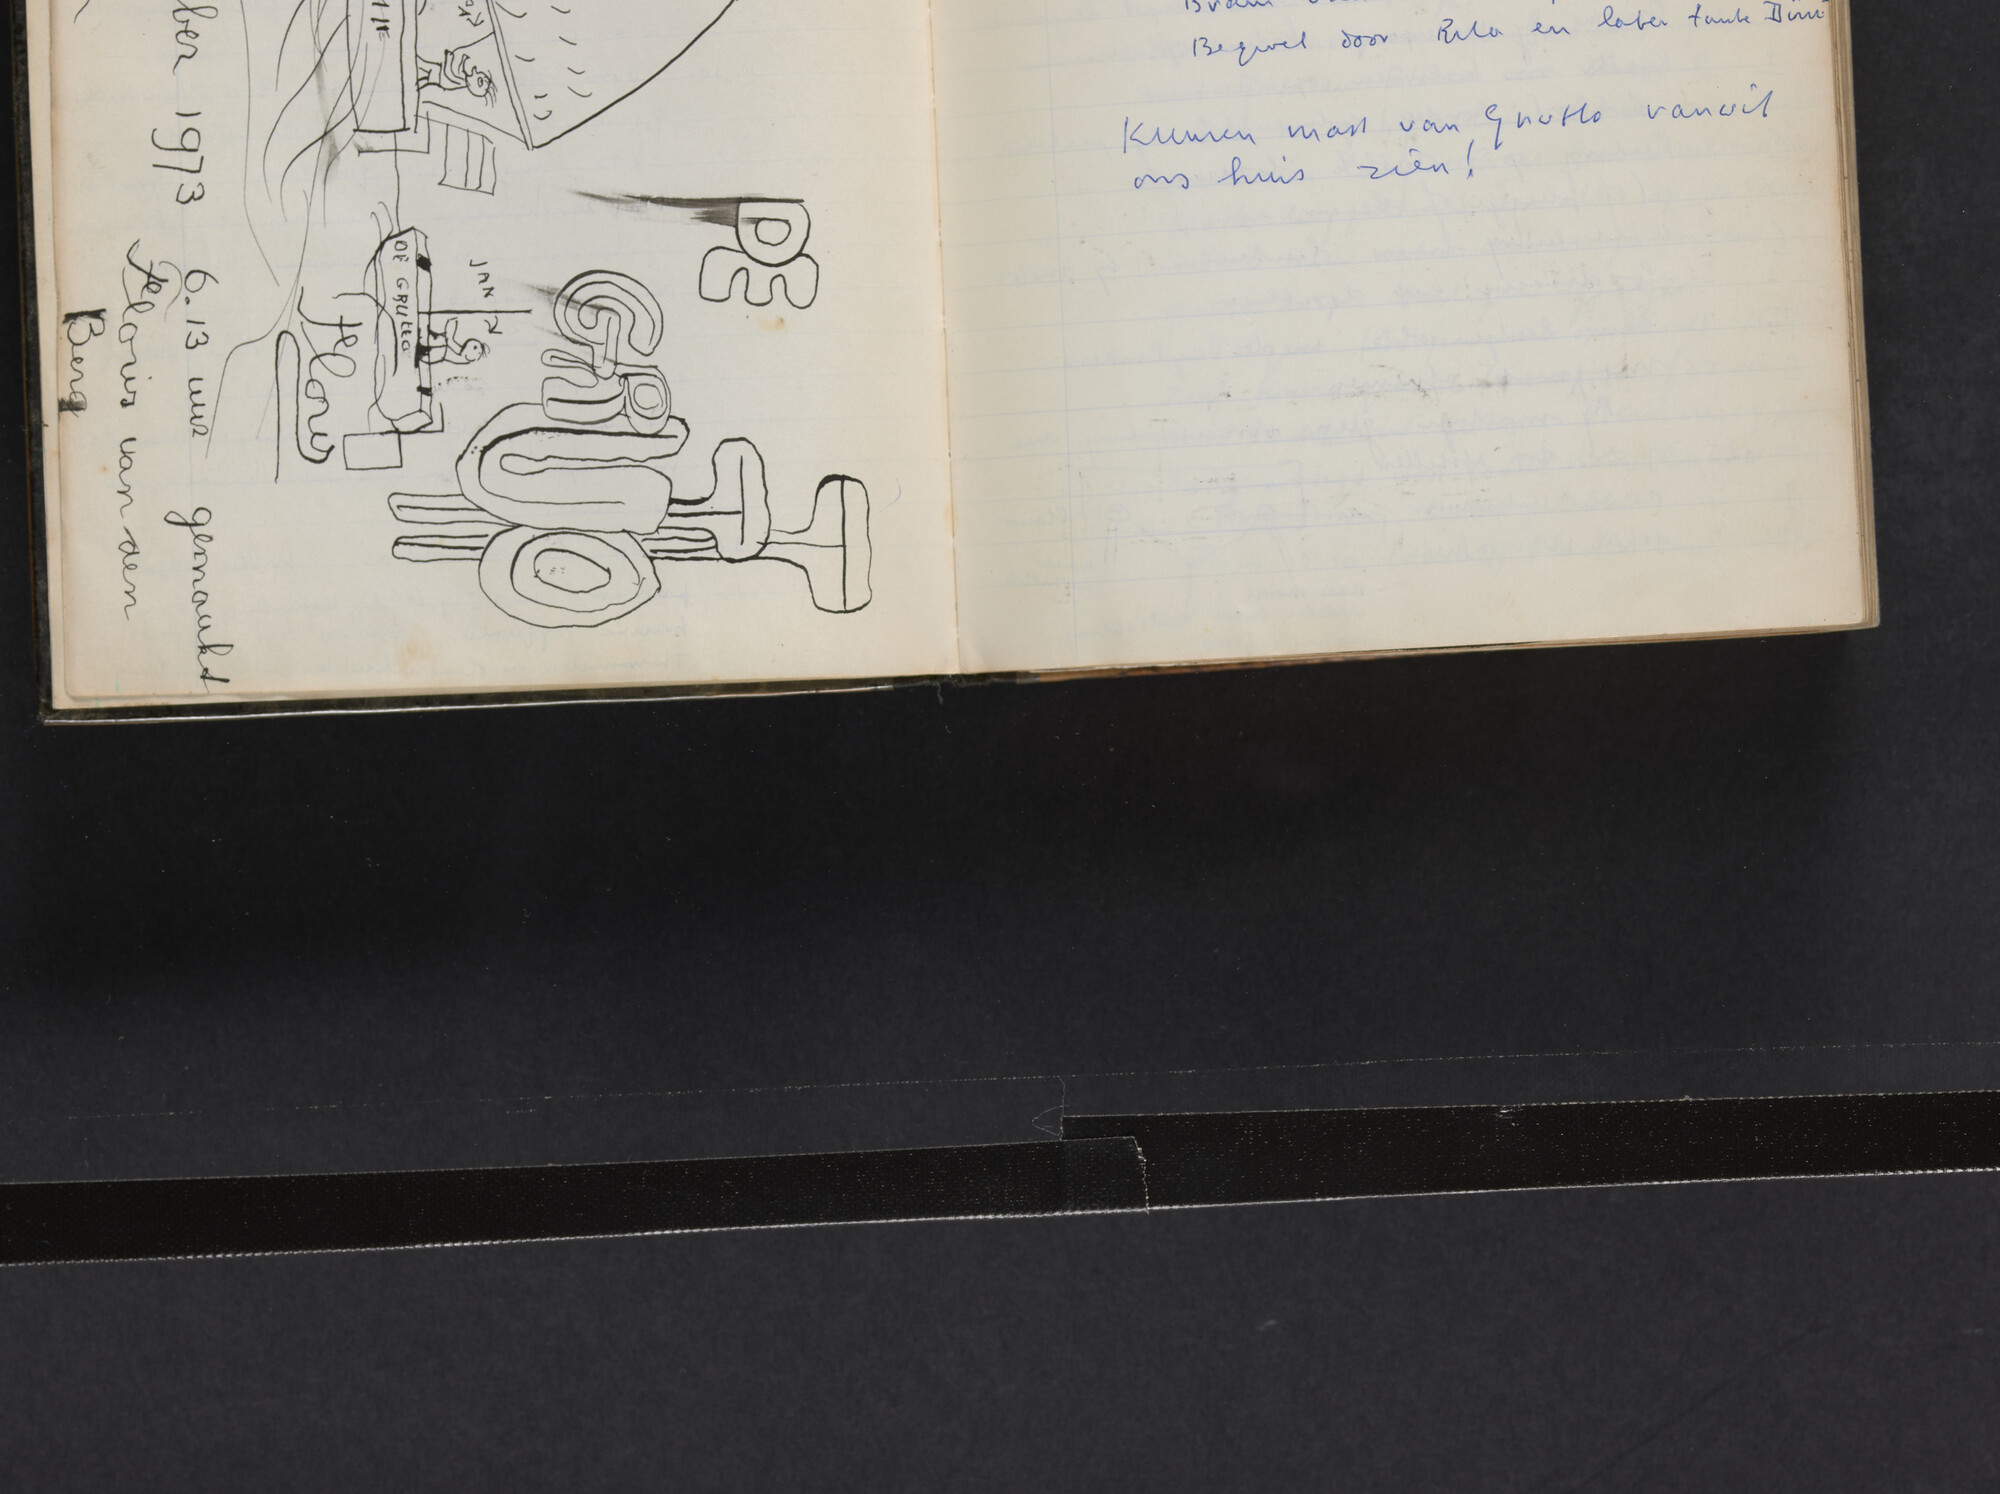 ber 1973 6.13 uur gemaakt
Floris van den
Berg
Floris
DE GRUTTO
JAN
DE
GRUTTO
Begroet door Rita en later tante Dini
Kunnen mast van Grutto vanuit
ons huis zien!